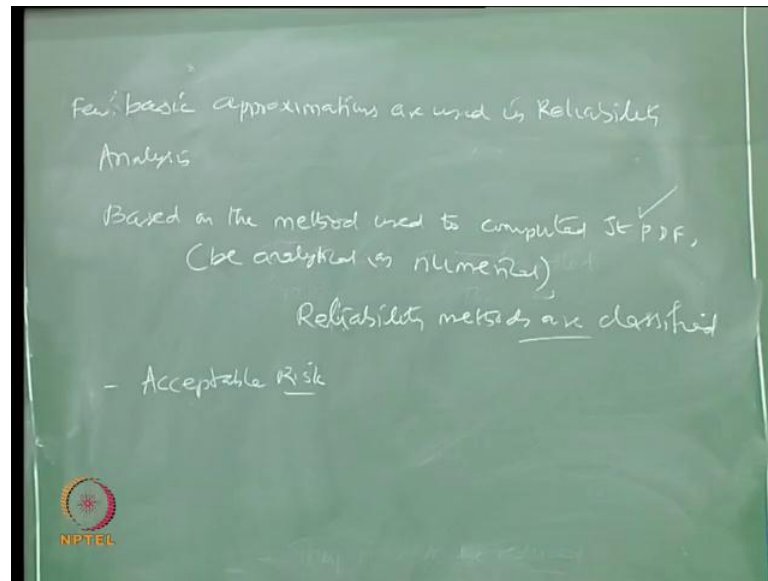 Few basic approximations are used in Reliability
Analysis
Based on the method used to computed Jt PDF,
(be analytical or numerical)
Reliability methods are classified
- Acceptable Risk
NPTEL